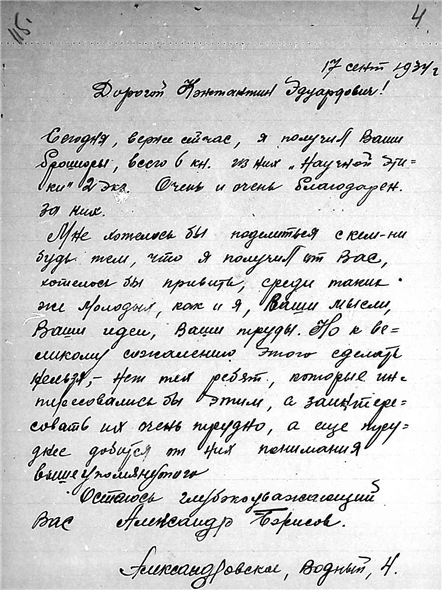 115.
4.
17 сент 1934 г
Дорогой Константин Эдуардович!
Сегодня, вернее сейчас, я получил Ваши
брошюры, всего 6 кн. из них „Научной эти-
ки" 2 экз. Очень и очень благодарен
за них.
Мне хотелось бы поделиться с кем-ни
будь тем, что я получил от Вас,
хотелось бы привить, среди таких
же молодых, как и я, Ваши мысли,
Ваши идеи, Ваши труды. Но к ве-
ликому сожалению этого сделать
нельзя, – нет тех ребят, которые ин-
тересовались бы этим, а заинтере-
совать их очень трудно, а еще тру-
днее добиться от них понимания
вышеупомянутого
Остаюсь глубокоуважающий
Вас Александр Борисов.
Александровская, Водный, 4.